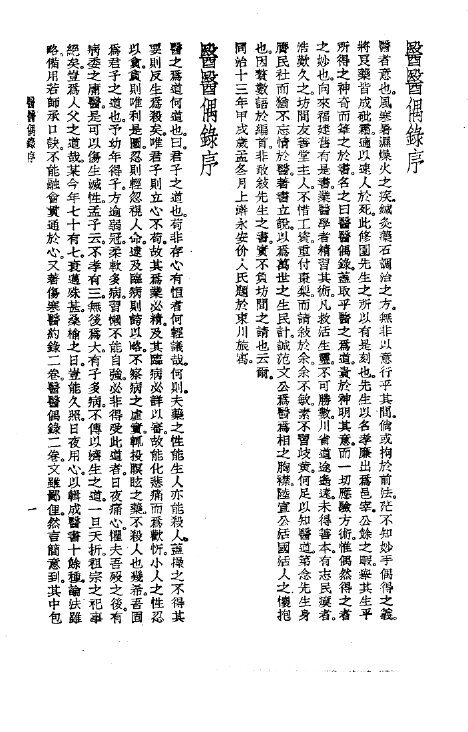 醫醫偶錄序
醫者意也風寒暑濕燥火之疾鍼灸藥石調治之方無非以意行乎其間倘或拘於前法茫不知妙手偶得之義
將良藥皆成砒霜適以速人於死此修園先生之所以有是刻也先生以名孝廉出爲邑宰公餘之暇案其生平
所得之神奇而筆之於書名之曰醫醫偶錄蓋取乎醫之爲道貴於神明其意而一切應驗方術惟偶然得之者
之妙也向來福建舊有是書業醫學者精習其術凡救活生靈不可勝數川省道途遙遠未得善本有志民瘼者
浩歎久之坊間友善堂主人不惜工貲重付棗梨而請敍於余余不敏素不習歧黃何足以知醫道第念先生身
膺民社而猶不忘情於醫著書立說以爲萬世之生民計誠范文公爲醫爲相之胸襟陸宣公活國活人之懷抱
也因贅數語於編首非敢敍先生之書實不負坊間之請也云爾
同治十三年甲戌歲孟冬月上澣永安价人氏題於東川旅寓
醫醫偶錄序
醫之爲道何道也曰君子之道也苟非存心有恒者何輕議哉何則夫藥之性能生人亦能殺人蓋操之不得其
要則反生爲殺矣唯君子則立心不苟故其爲業必精及其臨病必詳以審故能化悲痛而爲歡忻小人之性忍
以貪貪則唯利是圖忍則輕忽視人命遠及臨病則誇以略不察病之虛實輒投瞑眩之藥不殺人也幾希吾固
爲君子之道也予幼年得千方逾弱冠柔軟多病習懶不能自強必非得受此道者日夜痛心懼夫吾歿之後有
病委之庸醫是可以傷生滅性孟子云不孝有三無後爲大有子多病不傳以濟生之道一旦夭折祖宗之祀事
絕矣豈爲人父之道哉某今年七十有七衰邁殊甚桑榆之日豈能久照日夜用心以輯成醫書十餘種論法雖
略備用若師承口訣不能融會貫通於心又著傷寒醫約錄二卷醫醫偶錄二卷文雖鄙俚然言簡意到其中包
醫醫偶錄序
一